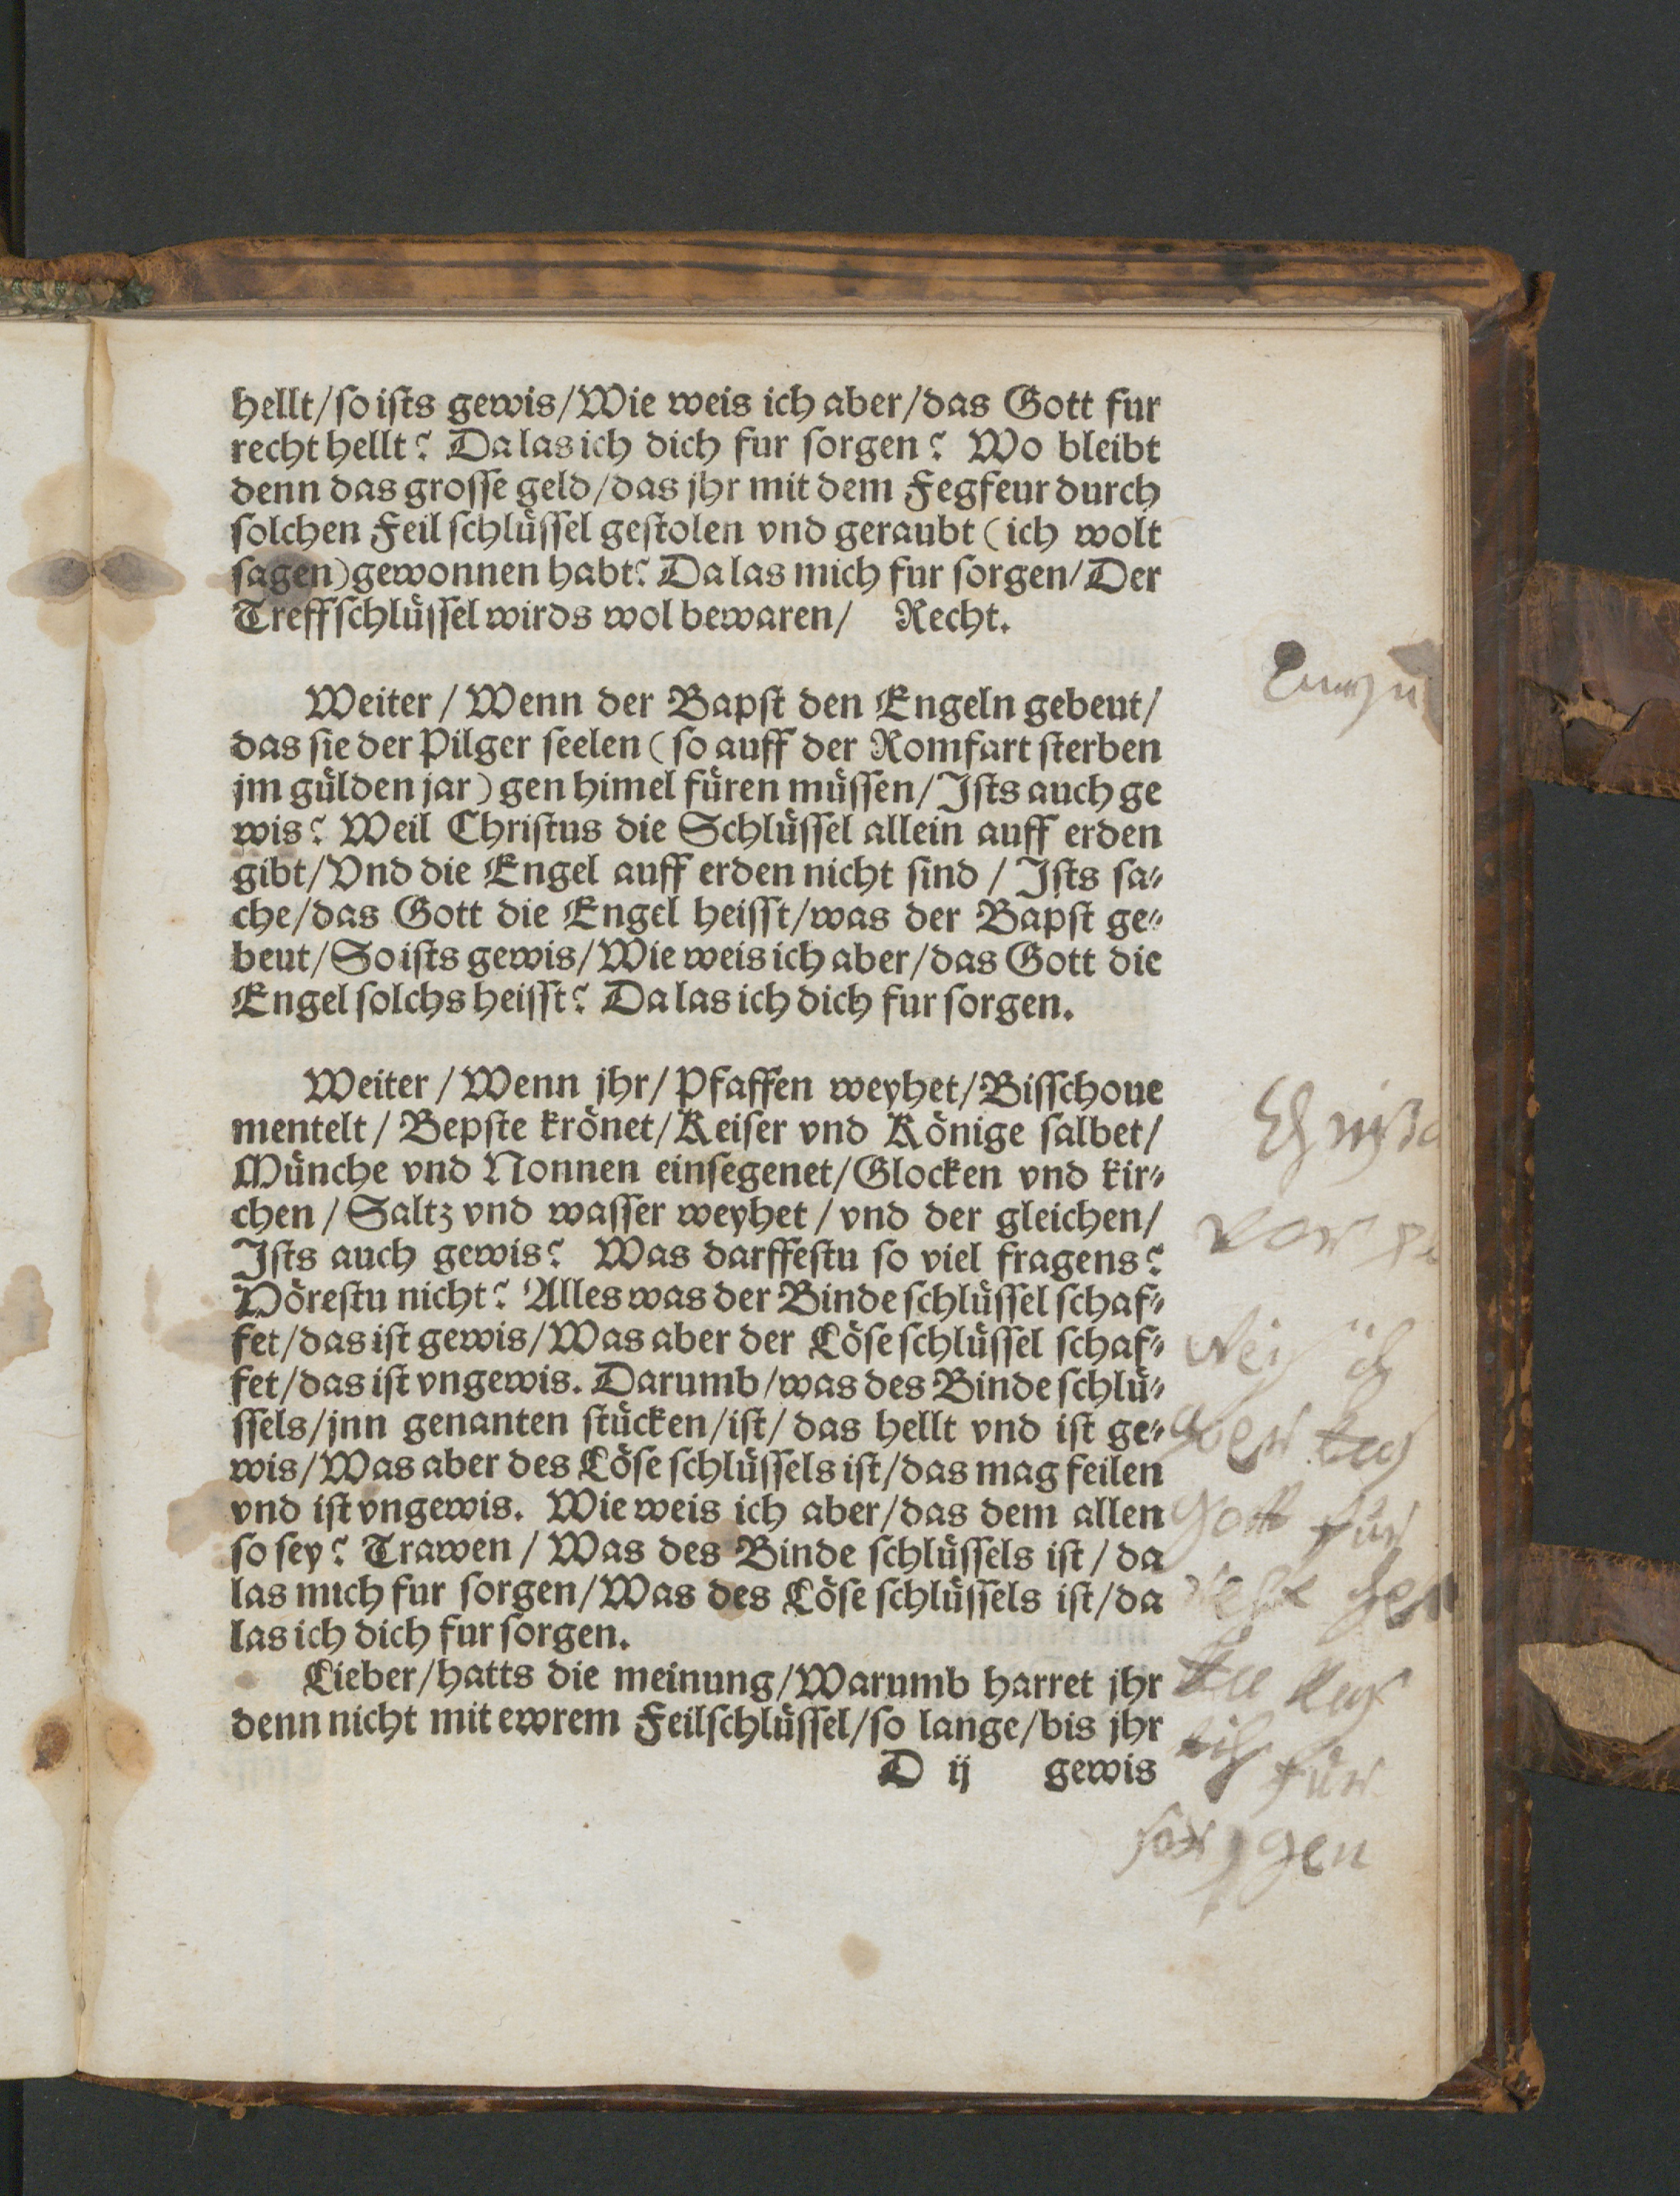 hellt/so ists gewis/Wie weis ich aber/das Gott fur
recht hellt? Da las ich dich fur sorgen? Wo bleibt
denn das grosse geld/das jhr mit dem Fegfeur durch
solchen Feil schlüssel gestolen vnd geraubt (ich wolt
sagen) gewonnen habt? Da las mich fur sorgen/Der
Treffschlüssel wirds wol bewaren/ Recht.
Weiter/Wenn der Bapst den Engeln gebeut/
das sie der Pilger seelen (so auff der Romfart sterben
jm gülden jar) gen himel füren müssen/Ists auch ge
wis? Weil Christus die Schlüssel allein auff erden
gibt/Vnd die Engel auff erden nicht sind/Ists sa-
che/das Gott die Engel heisst/was der Bapst ge-
beut/So ists gewis/Wie weis ich aber/das Gott die
Engel solchs heisst? Da las ich dich fur sorgen.
Weiter/Wenn jhr/Pfaffen weyhet/Bisschoue
mentelt/Bepste krönet/Keiser vnd Könige salbet/
Münche vnd Nonnen einsegenet/Glocken vnd kir-
chen/Saltz vnd wasser weyhet/vnd der gleichen/
Ists auch gewis? Was darffestu so viel fragens?
Hörestu nicht? Alles was der Binde schlüssel schaf-
fet/das ist gewis/Was aber der Löse schlüssel schaf-
fet/das ist vngewis. Darumb/was des Binde schlü-
ssels/jnn genanten stücken/ist/das hellt vnd ist ge-
wis/Was aber des Löse schlüssels ist/das mag feilen
vnd ist vngewis. Wie weis ich aber/das dem allen
so sey? Trawen/Was des Binde schlüssels ist/da
las mich fur sorgen/Was des Löse schlüssels ist/da
las ich dich fur sorgen.
Lieber/hatts die meinung/Warumb harret jhr
denn nicht mit ewrem Feilschlüssel/so lange/bis jhr
D ij gewis
Gott für
für
sor gen